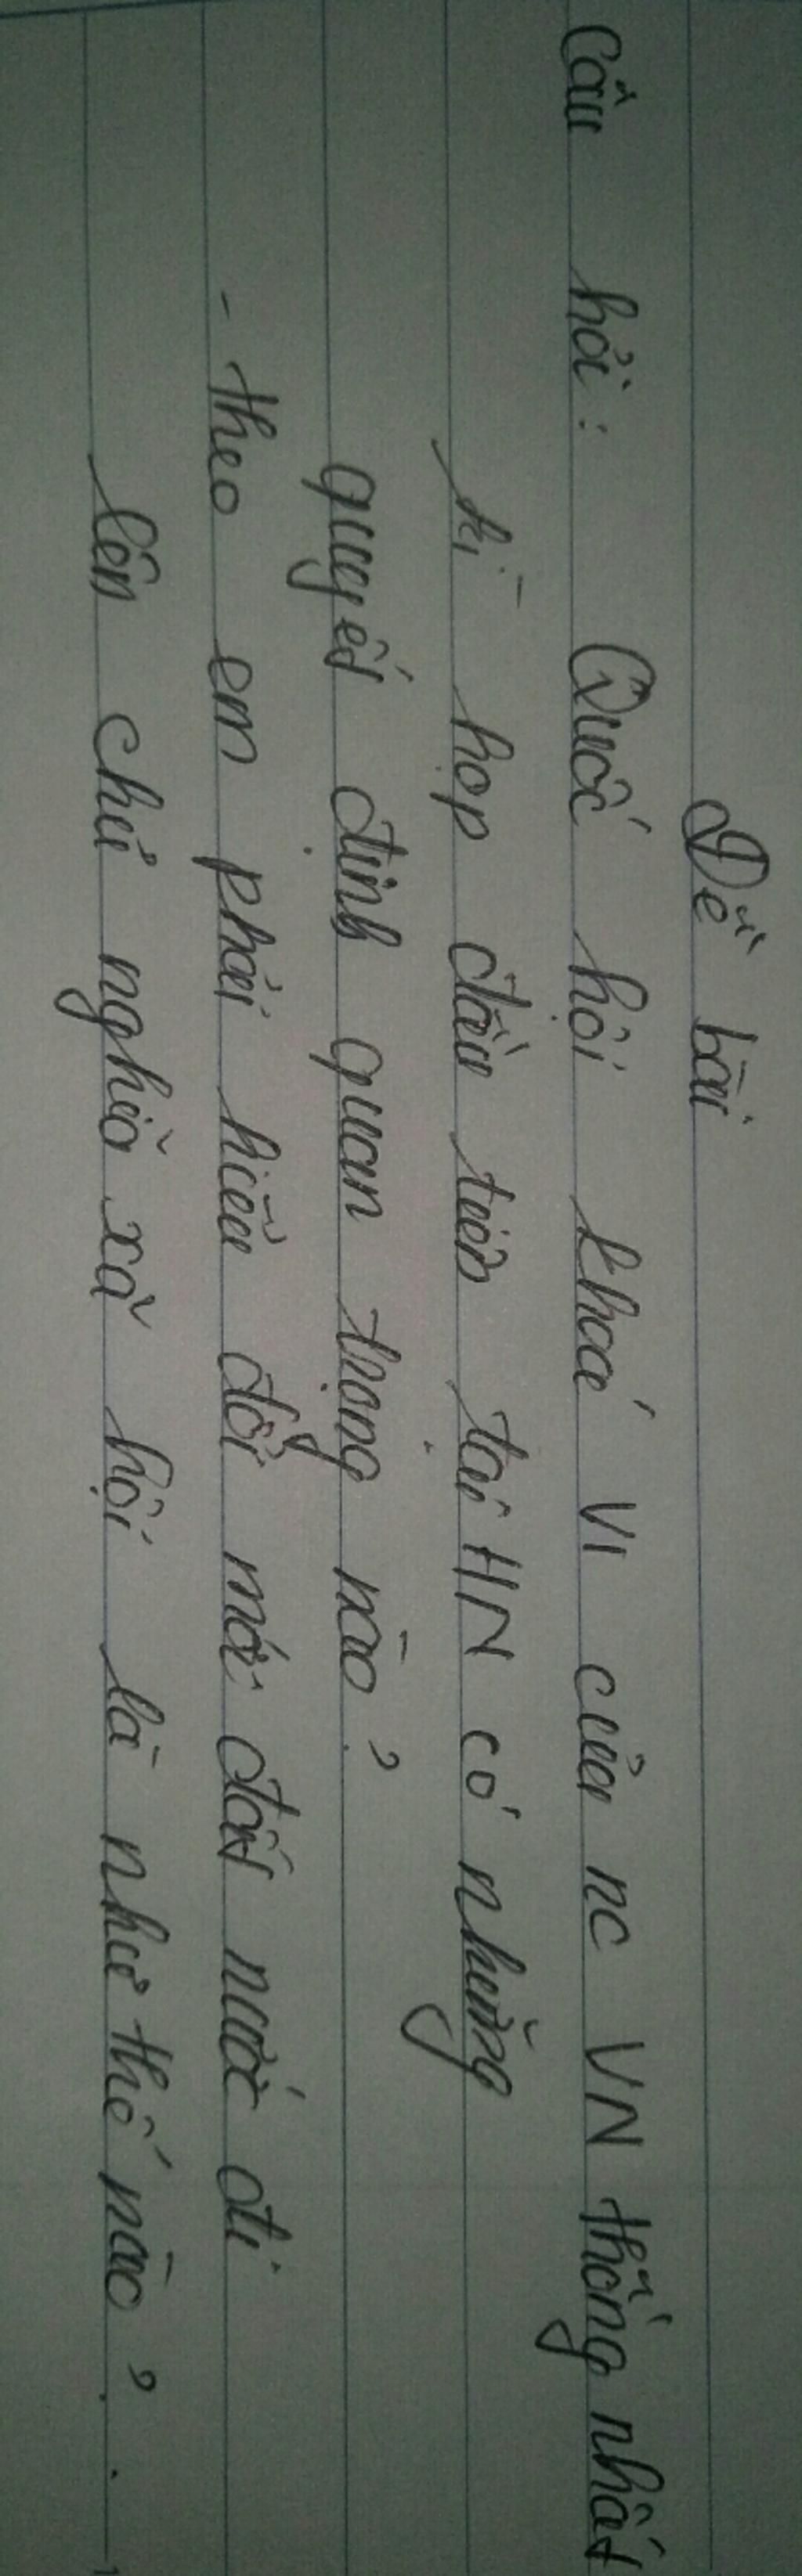 Đề bài
Câu hỏi: Quốc hội khoá VI của nc VN thống nhất
kì họp đầu tiên tại HN có những
quyết định quan trọng nào?
- theo em phải hiểu đổi mới đất nước đi
lên chủ nghĩa xã hội là như thế nào?.